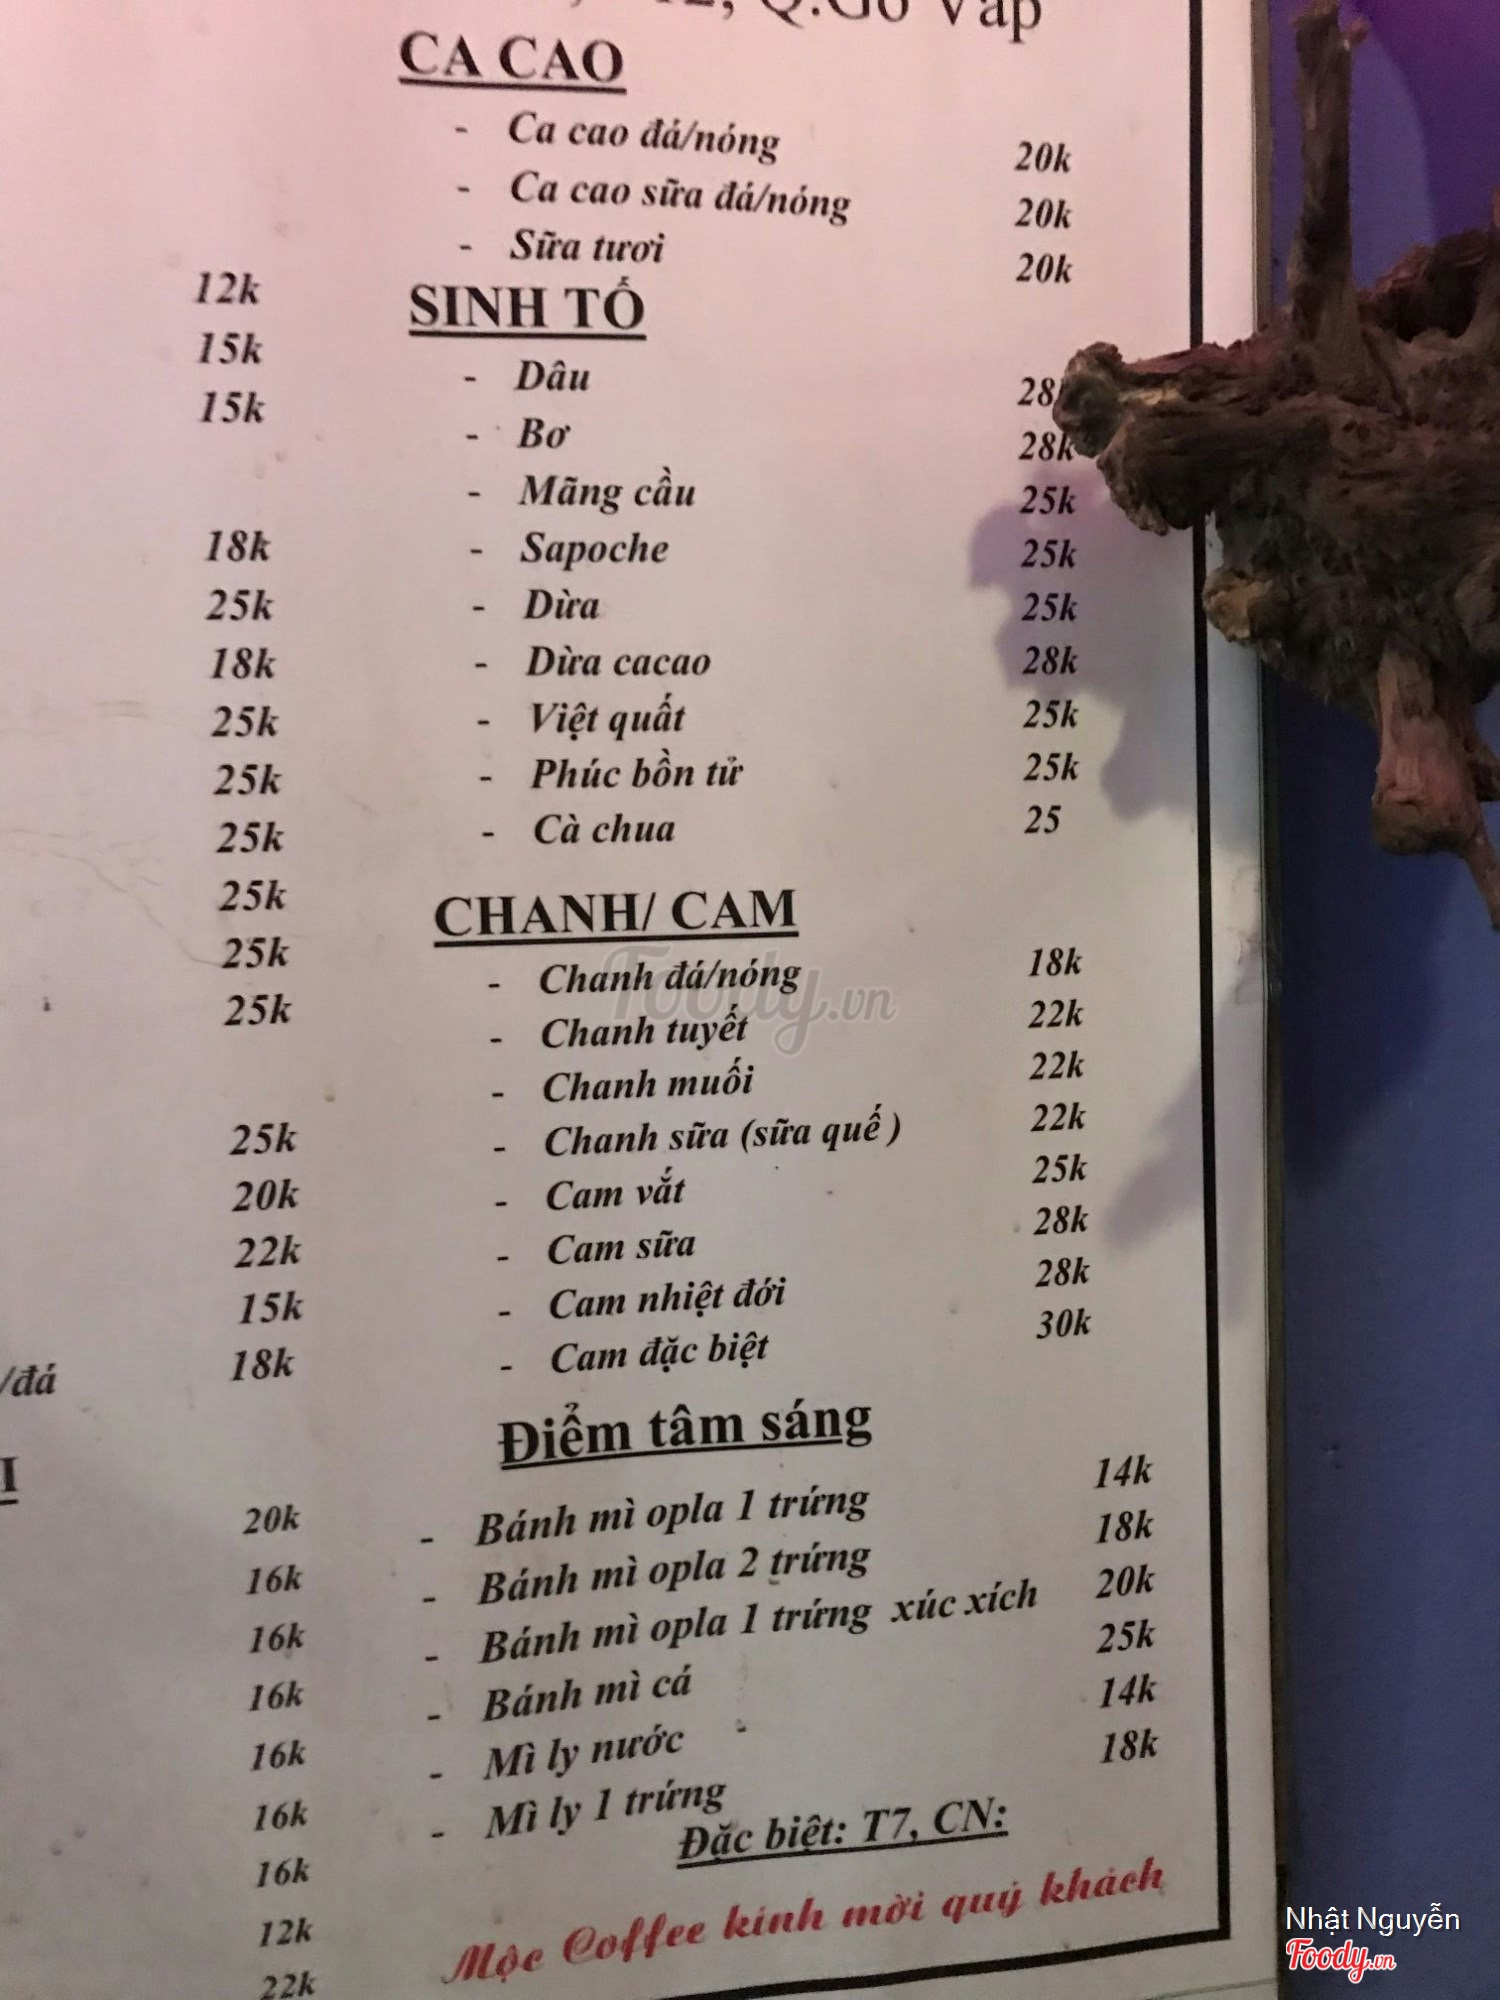 Q.Gò Vấp
CA CAO
- Ca cao đá/nóng 20k
- Ca cao sữa đá/nóng 20k
- Sữa tươi 20k
SINH TỐ
- Dâu 28
- Bơ 28k
- Mãng cầu 25k
- Sapoche 25k
- Dừa 25k
- Dừa cacao 28k
- Việt quất 25k
- Phúc bồn tử 25k
- Cà chua 25
CHANH/ CAM
- Chanh đá/nóng 18k
- Chanh tuyết 22k
- Chanh muối 22k
- Chanh sữa (sữa quế ) 22k
- Cam vắt 25k
- Cam sữa 28k
- Cam nhiệt đới 28k
- Cam đặc biệt 30k
Điểm tâm sáng
- Bánh mì opla 1 trứng 14k
- Bánh mì opla 2 trứng 18k
- Bánh mì opla 1 trứng xúc xích 20k
- Bánh mì cá 25k
- Mì ly nước 14k
- Mì ly 1 trứng 18k
Đặc biệt: T7, CN:
Mộc Coffee kính mời quý khách
12k
15k
15k
18k
25k
18k
25k
25k
25k
25k
25k
25k
25k
20k
22k
15k
/đá 18k
I
20k
16k
16k
16k
16k
16k
16k
12k
22k
Foody.vn
Nhật Nguyễn
Foody.vn